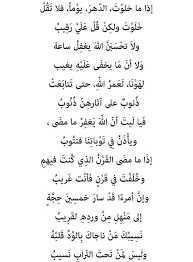 إذا ما خلوْتَ، الدّهرَ، يوْماً، فلا تَقُلْ
خَلَوْتَ ولكِنْ قُل عَلَيَّ رَقِيبُ
ولاَ تحْسَبَنَّ اللهَ يغفِلُ ساعة
وَلا أنَ مَا يخفَى عَلَيْهِ يغيب
لهَوْنَا، لَعَمرُ اللهِ، حتى تَتابَعَتْ
ذُنوبٌ على آثارهِنّ ذُنُوبُ
فَيا لَيتَ أنّ اللهَ يَغفِرُ ما مضَى ،
ويأْذَنُ فِي تَوْباتِنَا فنتُوبُ
إذَا ما مضَى القَرْنُ الذِي كُنتَ فيهمِ
وخُلّفْتَ في قَرْنٍ فَأنت غَريبُ
وإنَّ أمرءًا قَدْ سارَ خمسِينَ حِجَّةٍ
إلى مَنْهَلِ مِنْ وردِهِ لقَرِيبُ
نَسِيبُكَ مَنْ ناجاكَ بِالوُدِّ قَلبُهُ
ولَيسَ لمَنْ تَحتَ التّرابِ نَسيبُ